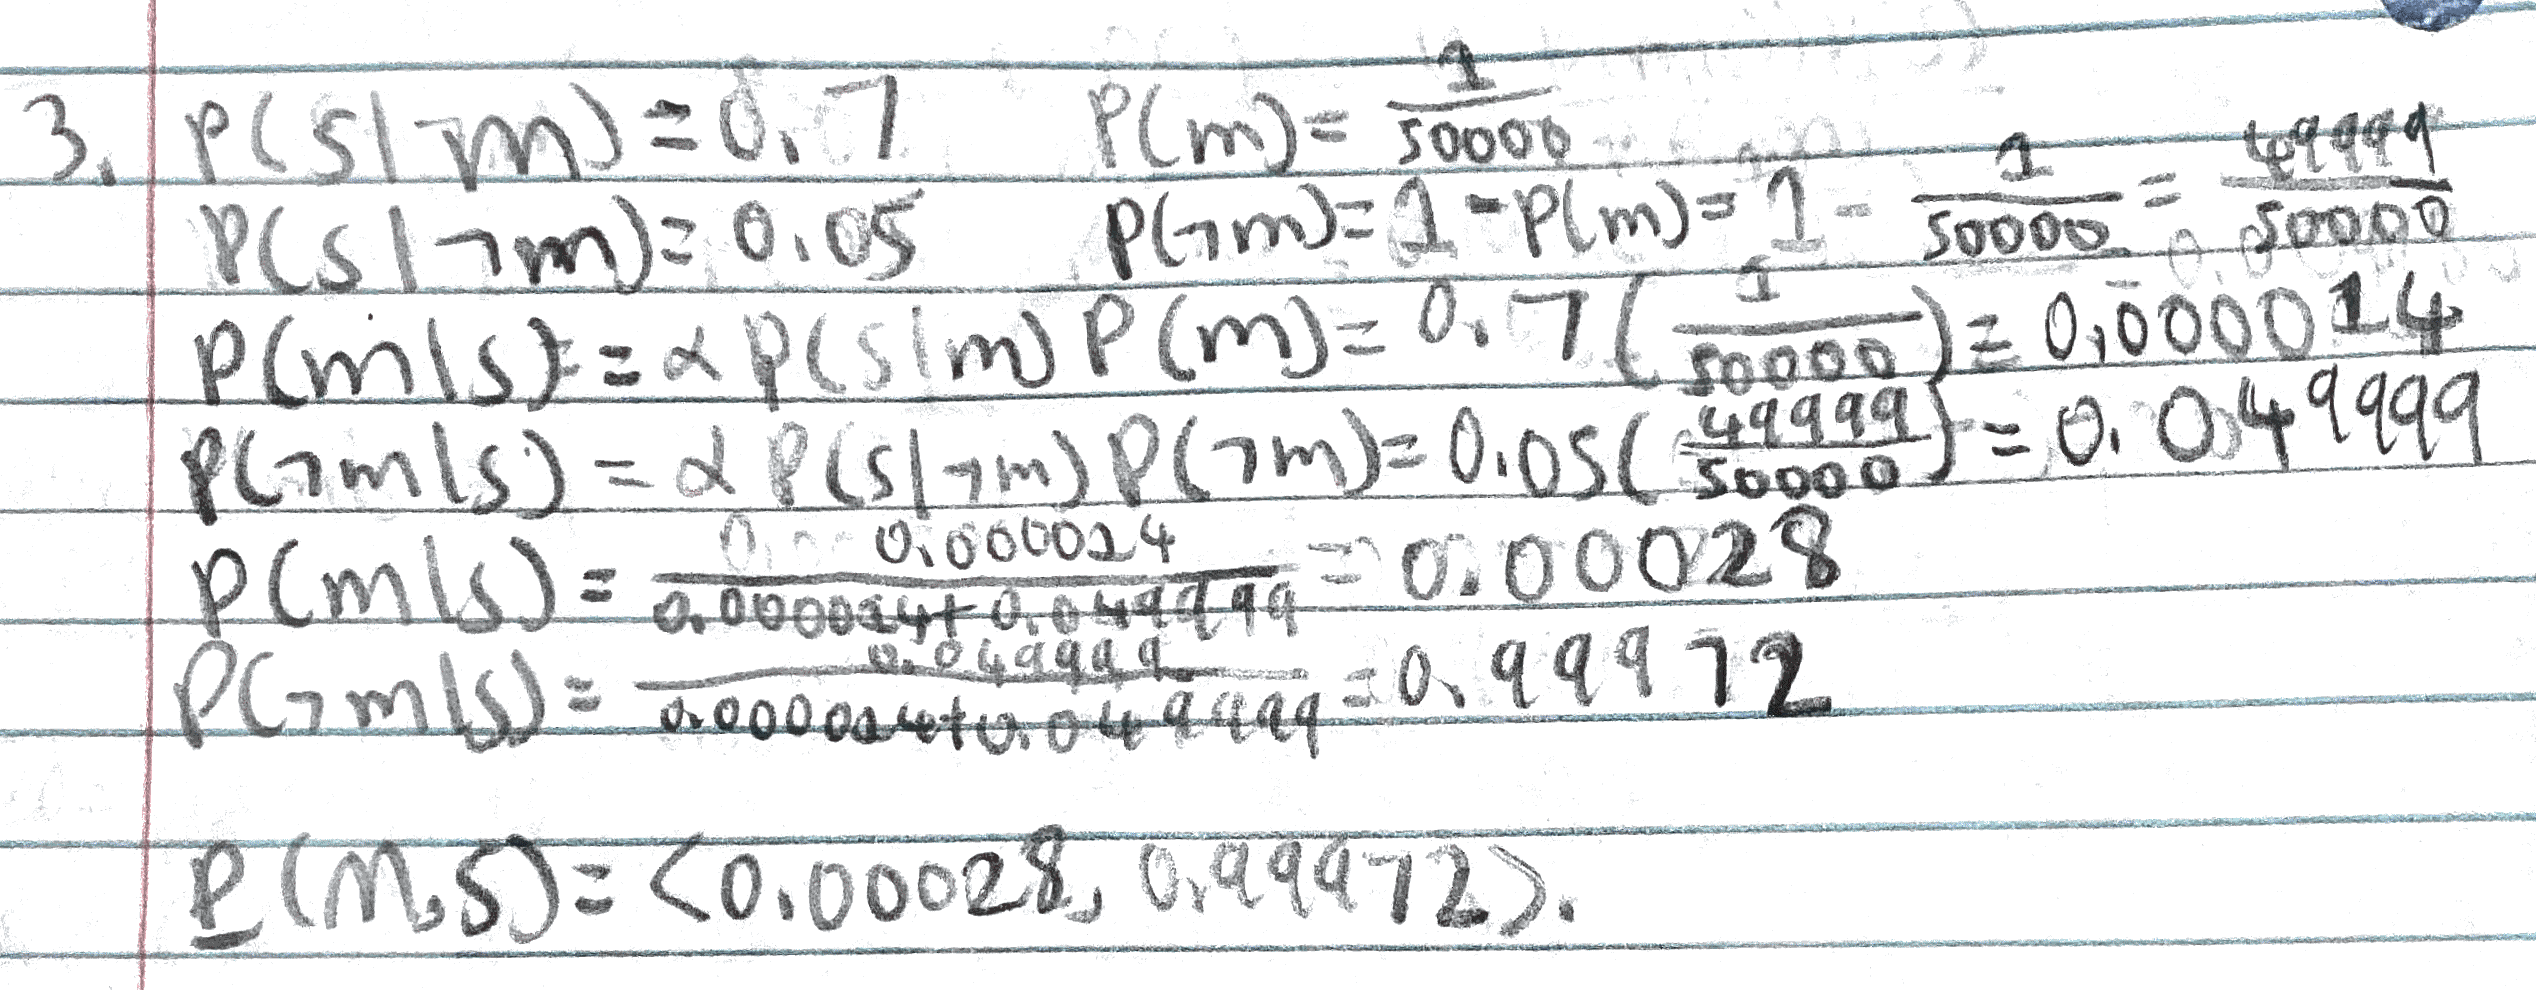 3. P(s|¬m)=0.7 P(m)=1/50000
P(s|¬m)=0.05 P(¬m)=1-P(m)=1-1/50000=49999/50000
P(m|s)=αP(s|m)P(m)=0.7(1/50000)=0.000014
P(¬m|s)=αP(s|¬m)P(¬m)=0.05(49999/50000)=0.049999
P(m|s)=0.000014/0.000014+0.049999=0.00028
P(¬m|s)=0.049999/0.000014+0.049999=0.99972
P(M,S)=<0.00028, 0.99972>.